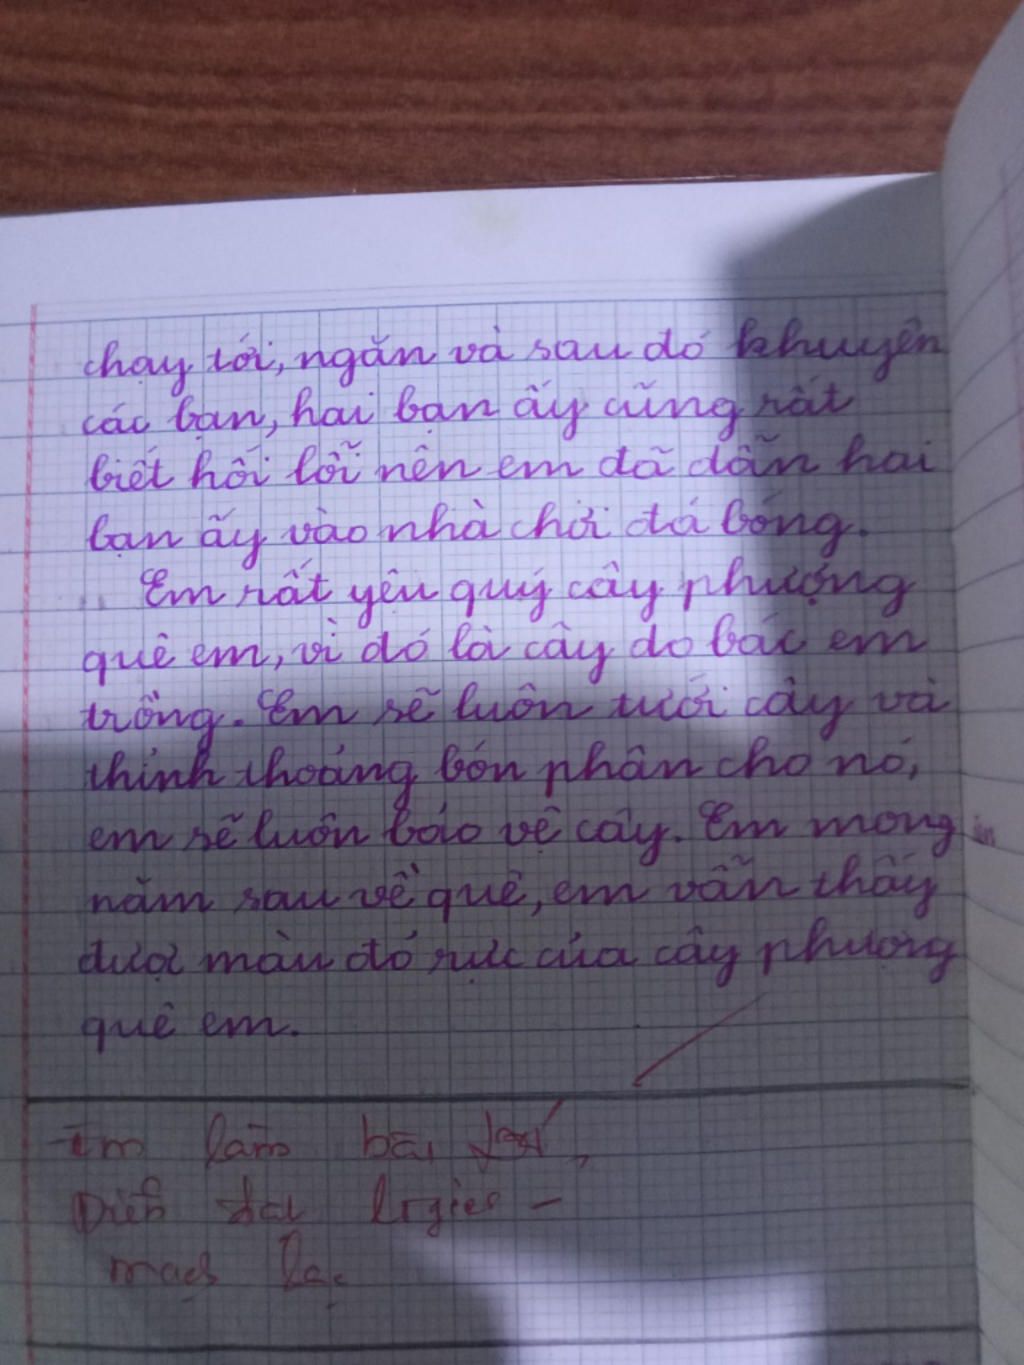 chạy tới, ngăn và sau đó khuyên
các bạn, hai bạn ấy cũng rất
biết hối lỗi nên em đã dẫn hai
bạn ấy vào nhà chơi đá bóng.
Em rất yêu quý cây phượng
quê em, vì đó là cây do bác em
trồng. Em sẽ luôn tưới cây và
thỉnh thoảng bón phân cho nó,
em sẽ luôn bảo vệ cây. Em mong
năm sau về quê, em vẫn thấy
được màu đỏ rực của cây phượng
quê em.
Em làm bài
Diễn đạt logics -
mạch lạc